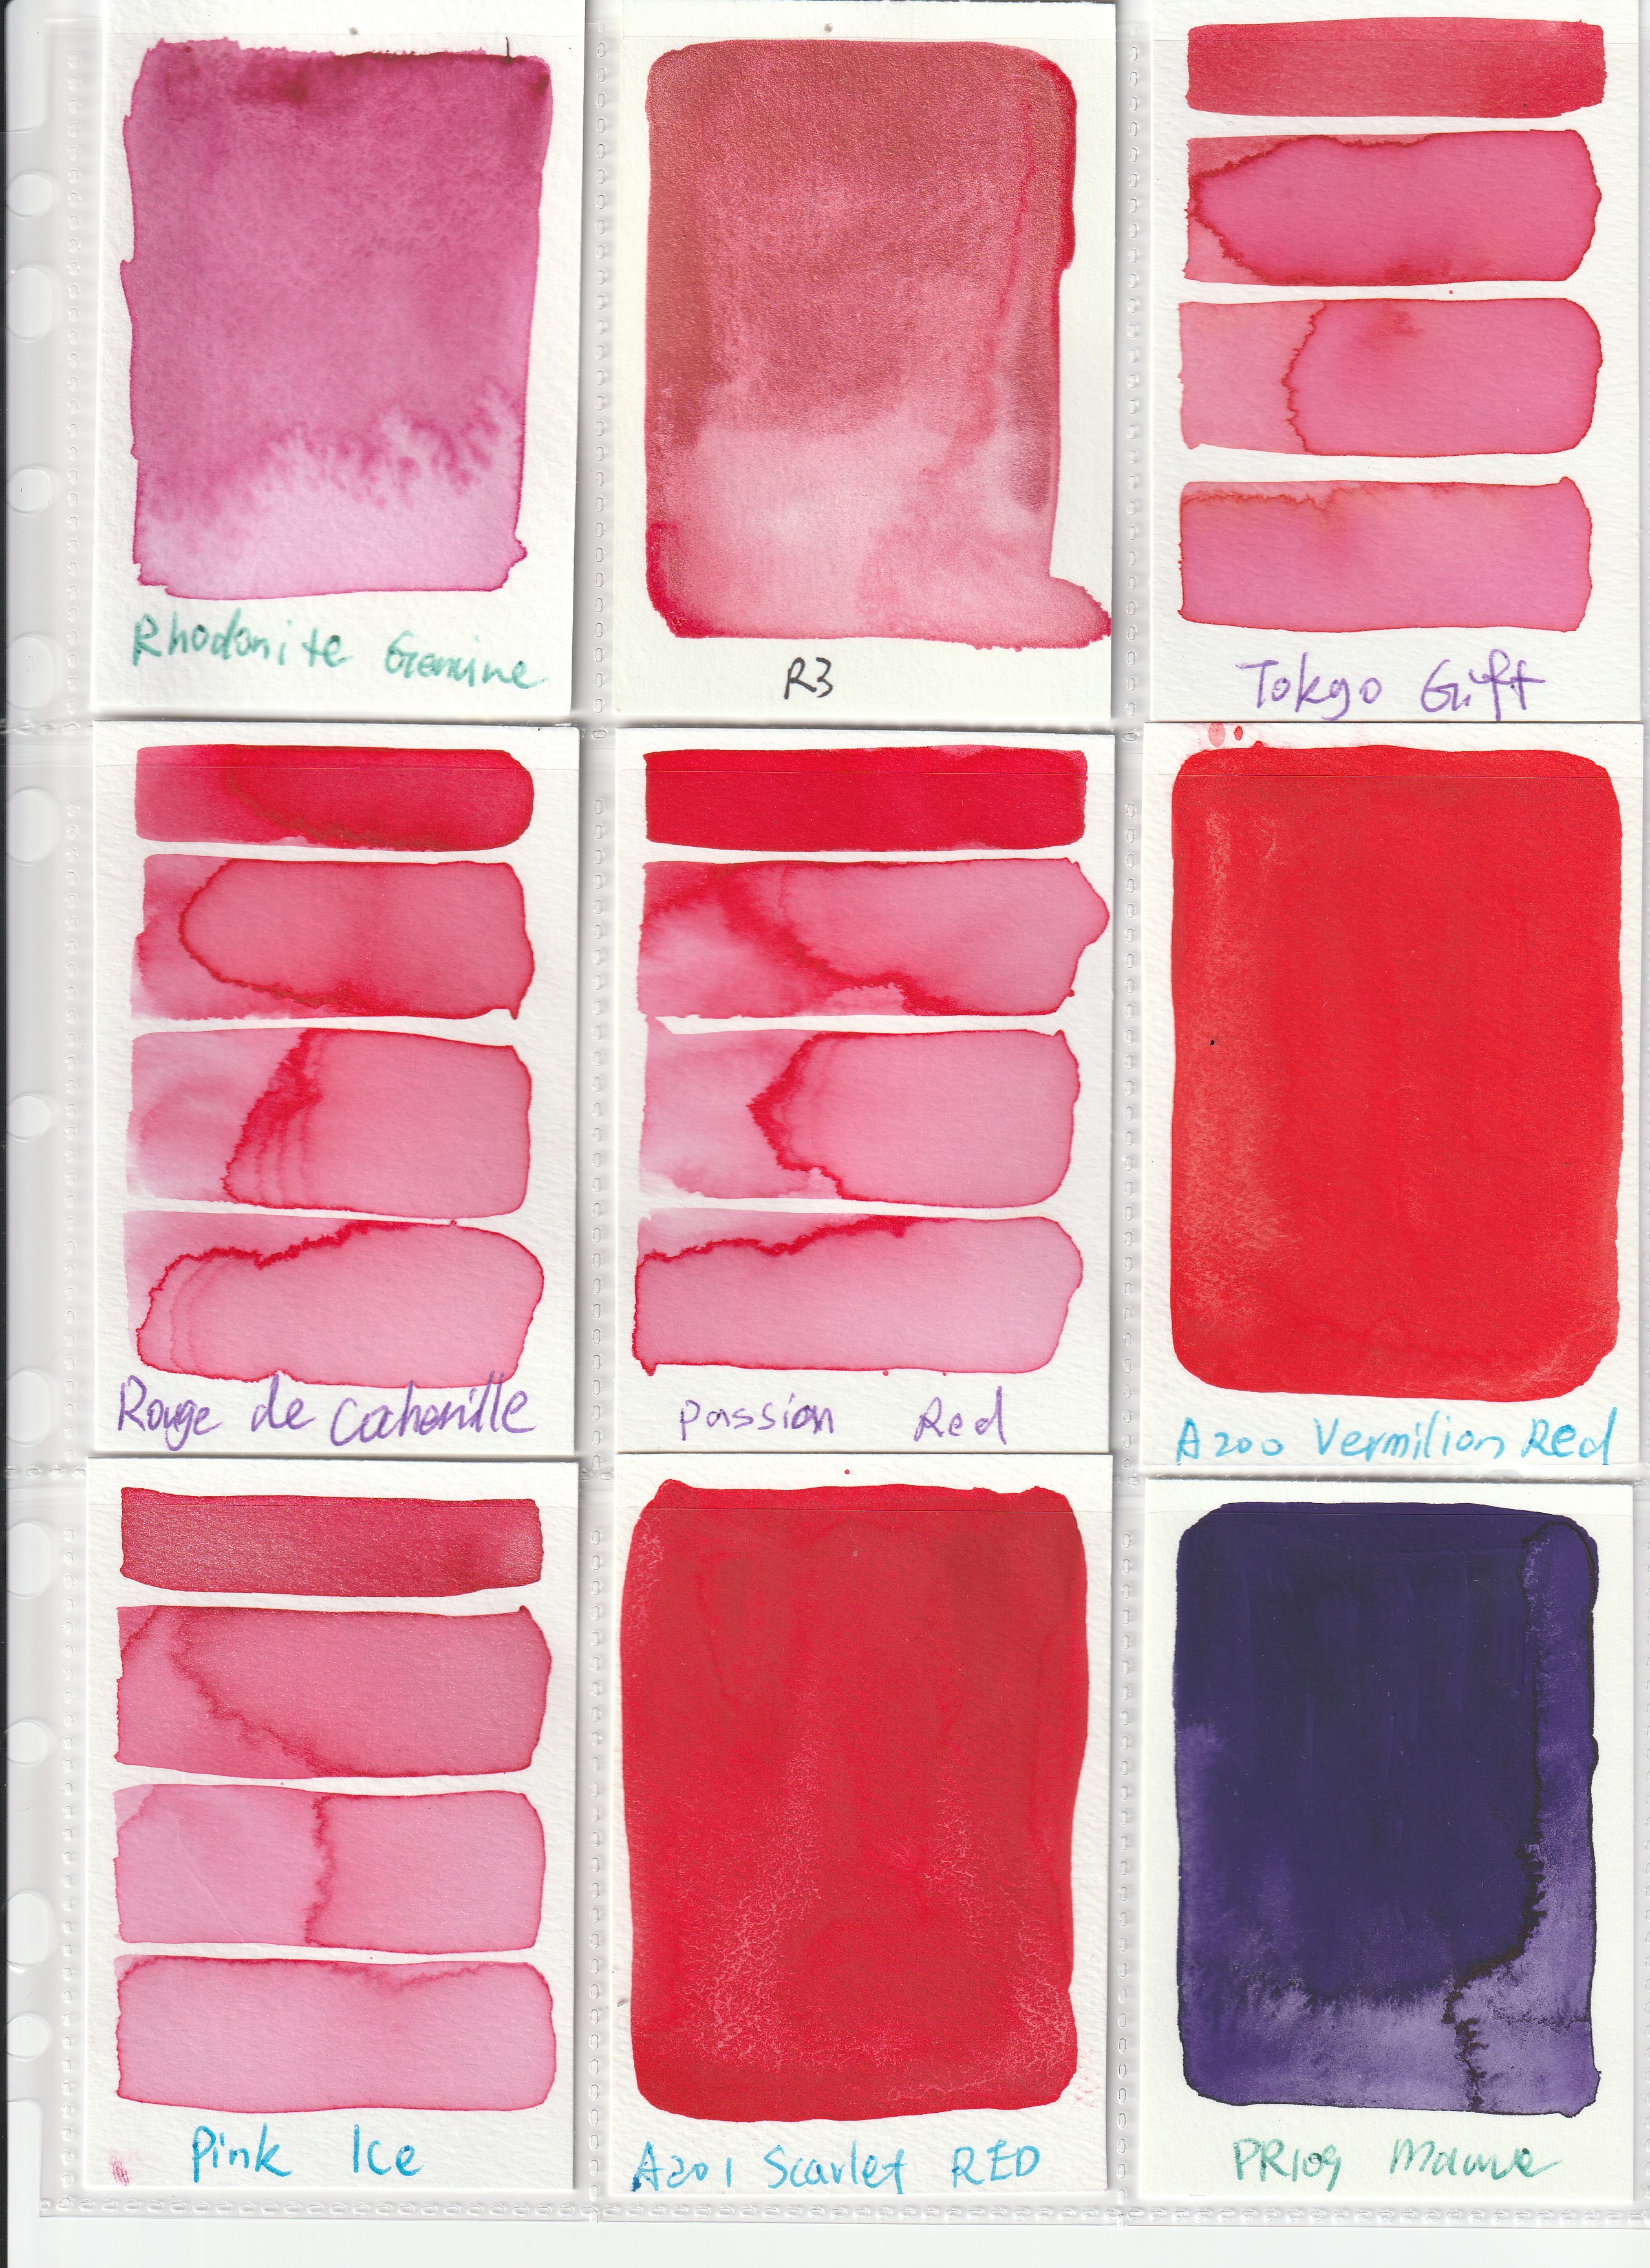 Rhodonite Genuine
R3
Tokyo Gift
Rouge de Cochenille
Passion Red
A200 Vermilion Red
Pink Ice
A201 Scarlet RED
PR109 Mauve